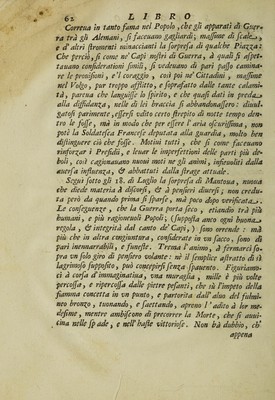 62 LIBRO
Correua in tanto fama nel Popolo, che gli apparati di Guer-
ra trà gli Alemani, si faceuano gagliardi; massime di scale,
e d'altri stromenti minaccianti la sorpresa di qualche Piazza:
Che perciò, sì come ne' Capi nostri di Guerra, à quali si aspet-
tauano considerationi simili, si vedeuano di pari passo camina-
re le prouisioni, e'l coraggio, così poi ne' Cittadini, massime
nel Volgo, pur troppo afflitto, e soprafatto dalle tante calami-
tà, pareua che languisse lo spirito, e che quasi dati in preda
alla diffidanza, nelle di lei braccia si abbandonassero: diuul-
gatosi parimente, essersi udito certo strepito di notte tempo den-
tro le fosse, mà in modo che per essere l'aria oscurissima, non
potè la Soldatesca Francese deputata alla guardia, molto ben
distinguere ciò che fosse. Motiui tutti, che sì come faceuano
rinforzar i Presidii, e leuar le imperfettioni delle parti più de-
boli, così cagionauano nuoui moti ne gli animi, infeuoliti dalla
auersa influenza, & abbattuti dalla strage attuale.
Seguì sotto gli 18. di Luglio la sorpresa di Mantoua, nuoua
che diede materia à discorsi, & à pensieri diuersi; non credu-
ta però da quando prima si sparse, mà poco dopo verificata.
Le conseguenze, che la Guerra porta seco, etiandio trà più
humani, e più ragioneuoli Popoli; (supposta anco ogni buona
regola, & integrità dal canto de' Capi,) sono orrende: mà
più che in altra congiuntura, considerate in un sacco, sono di
pari inenarrabili, e funeste. Trema l'animo, à fermarsi so-
pra un solo giro di pensiero volante: nè il semplice astratto di sì
lagrimoso supposito, può concepirsi senza spauento. Figuriamo-
ci à corsa d'immaginatiua, una muraglia, mille è più volte
percossa, e ripercossa dalle pietre pesanti, che tù l'impeto della
fiamma concetta in un punto, e partorita dall'aluo del fulmi-
neo bronzo, tuonando, e saettando, apreno l'adito à lor me-
desime, mentre ambiscono di precorrer la Morte, che si auui-
cina nelle spade, e nell'haste vittoriose. Non hà dubbio, ch'
appena